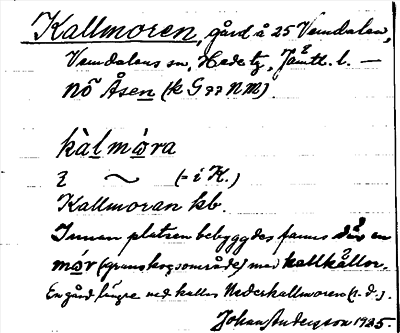 Kallmoren, gård å 25 Vemdalen,
Vemdalens sn, Hede tg, Jämtl. l. —
nö Åsen (k G 77 NM).
kàlmɷ́ra
i ~ (= i K.)
Kallmoran kb.
Innan platsen bebyggdes fanns där en
mɷr (granskogsområde) med kallkällor.
En gård längre ned kallas Nederkallmoren (s. d.).
Johan Andersson 1925.